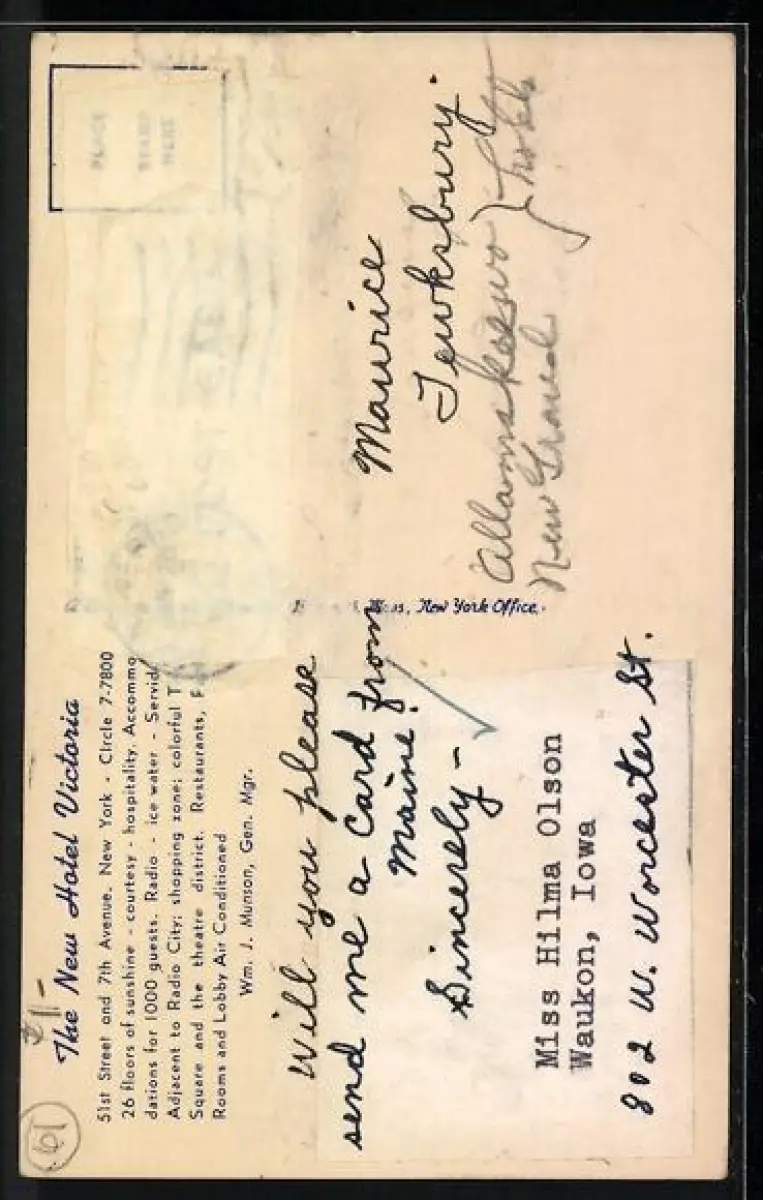 61
$1-
The New Hotel Victoria
51st Street and 7th Avenue. New York - CIrcle 7-7800
26 floors of sunshine - courtesy - hospitality. Accommo
dations for 1000 guests. Radio - ice water - Servid
Adjacent to Radio City; shopping zone; colorful T
Square and the theatre district. Restaurants,
Rooms and Lobby Air Conditioned
Wm. J. Munson, Gen. Mgr.
Will you please
send me a card from
Maine!
Sincerely -
Miss Hilma Olson
Waukon, Iowa
802 W. Worcester St.
New York Office.
PLACE
STAMP
HERE
Maurice
Tewksbury.
Allamakee
New